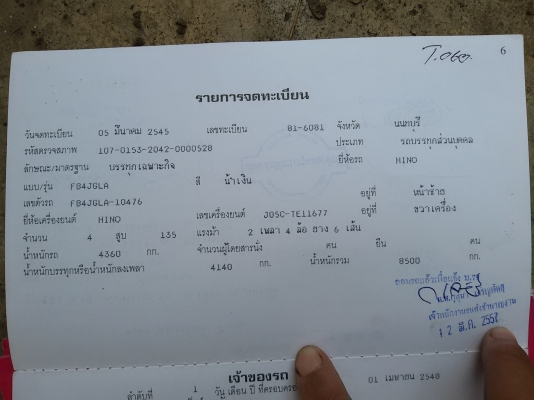 6
รายการจดทะเบียน
วันจดทะเบียน 05 มีนาคม 2545 เลขทะเบียน 81-6081 จังหวัด นนทบุรี
รหัสตรวจสภาพ 107-0153-2042-0000528 ประเภท รถบรรทุกส่วนบุคคล
ลักษณะ/มาตรฐาน บรรทุกเฉพาะกิจ ยี่ห้อรถ HINO
แบบ/รุ่น FB4JGLA สี น้ำเงิน
เลขตัวรถ FB4JGLA-10476 อยู่ที่ หน้าซ้าย
ยี่ห้อเครื่องยนต์ HINO เลขเครื่องยนต์ J05C-TE11677 อยู่ที่ ขวาเครื่อง
จำนวน 4 สูบ 135 แรงม้า 2 เพลา 4 ล้อ ยาง 6 เส้น
น้ำหนักรถ 4360 กก. จำนวนผู้โดยสารนั่ง คน ยืน คน
น้ำหนักบรรทุกหรือน้ำหนักลงเพลา 4140 กก. น้ำหนักรวม 8500 กก.
เจ้าของรถ
ลำดับที่ 1 วัน เดือน ปี ที่ครอบครอง 01 เมษายน 2548